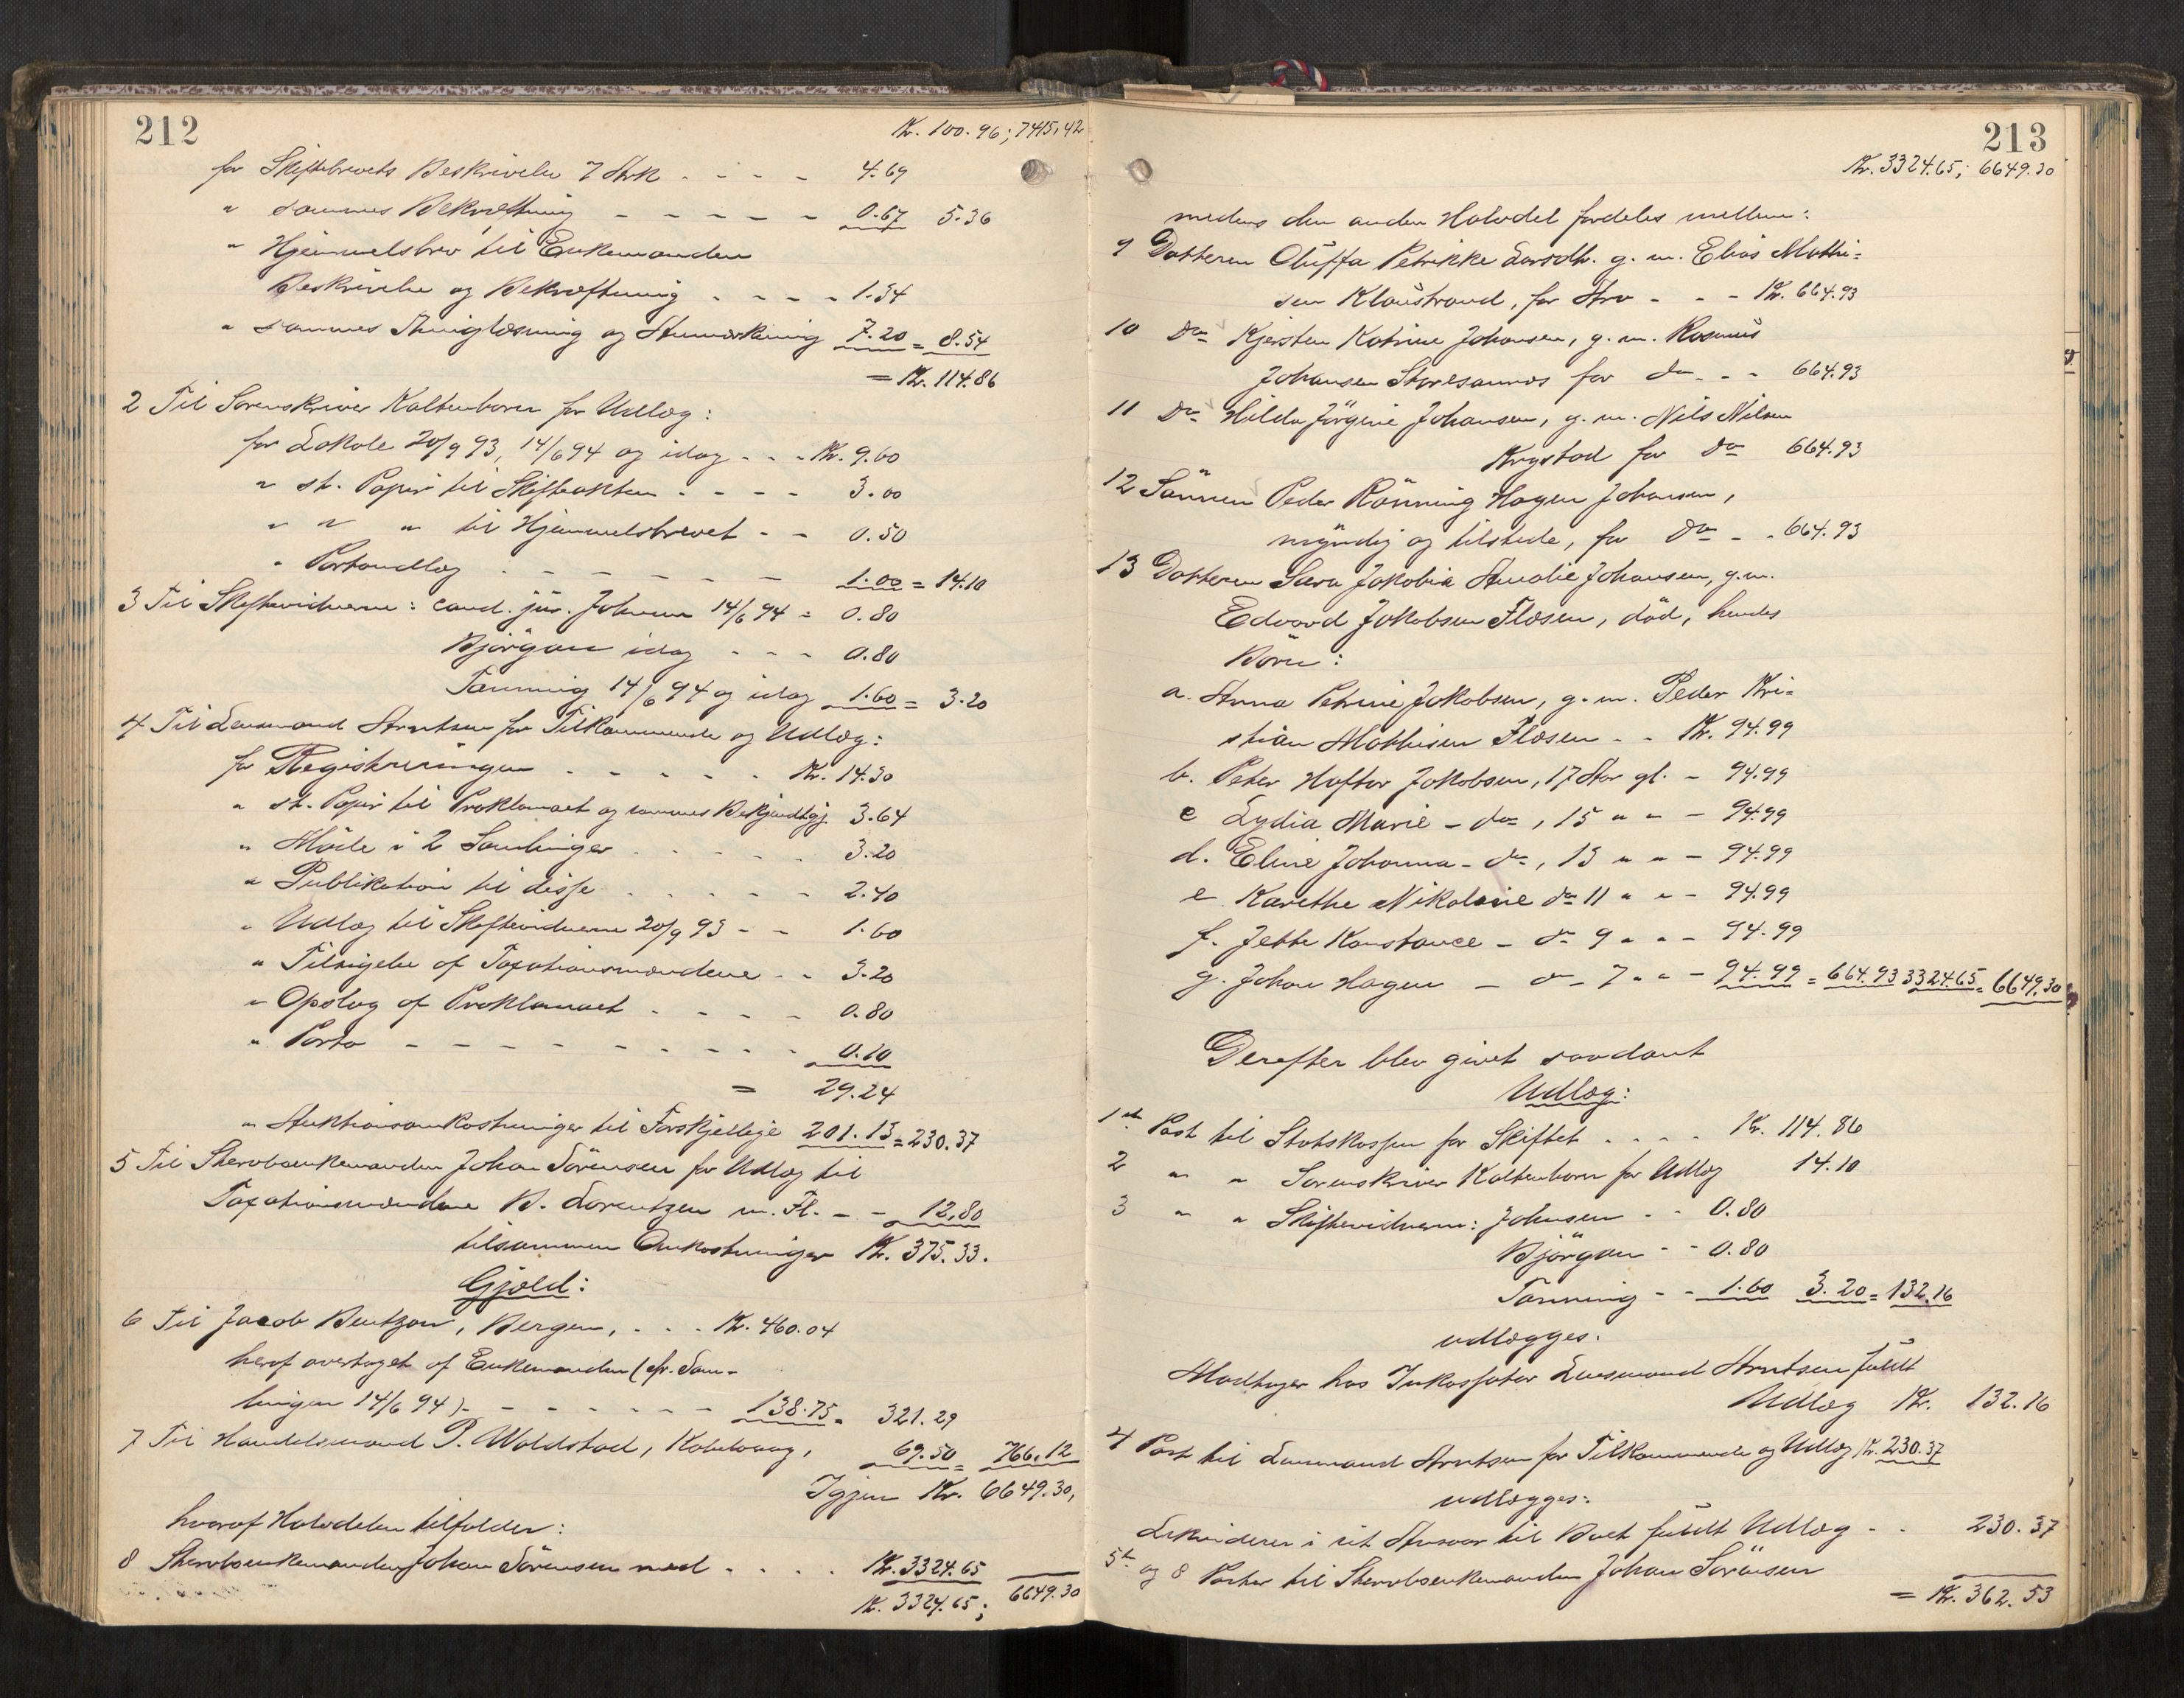 212
Kr. 100.96; 7415.42
for Skiftebrevets Beskrivelse 7 Ark . . . . 4.69
" sammes Bekræftning - - - - - 0.67 5.36
" Hjemmelsbrev til Enkemanden
Beskrivelse og Bekræftning . . . . 1.34
" sammes Thinglæsning og Anmærkning 7.20 = 8.54
= Kr. 114.86
2 Til Sorenskriver Kaltenborn for Udlæg:
for Lokale 20/9 93, 14/6 94 og idag . . . Kr. 9.60
" st. Papir til Skifteakten . . . . 3.00
" " " til Hjemmelsbrevet - - 0.50
" Portoudlæg - - - - - - 1.00 = 14.10
3 Til Skiftevidnerne: cand. jur. Johnsen 14/6 94 = 0.80
Bjørgan idag - - - 0.80
Tanning 14/6 94 og idag 1.60 = 3.20
4 Til Lensmand Arntsen for Tilkommende og Udlæg:
for Registreringen . . . . . Kr. 14.30
" st. Papir til Proklamaet og sammes Bekjendtgj. 3.64
" Møde i 2 Samlinger . . . . . 3.20
" Publikation til disse . . . . . 2.40
" Udlæg til Skiftevidnerne 20/9 93 - - 1.60
" Tilsigelse af Taxationsmændene . . 3.20
" Opslag af Proklamaet . . . . 0.80
" Porto - - - - - - - - - 0.10
= 29.24
" Auktionsomkostninger til Forskjellige 201.13 = 230.37
5 Til Stervboenkemanden Johan Sørensen for Udlæg til
Taxationsmændene B. Lorentzen m. Fl. - - 12.80
tilsammen Omkostninger Kr. 375.33.
Gjæld:
6 Til Jacob Bentzon, Bergen, . . . Kr. 460.04
heraf overtaget af Enkemanden (cfr. Sam-
lingen 14/6 94) - - - - - - 138.75 = 321.29
7 Til Handelsmand P. Woldstad, Kobbevaag, 69.50 = 766.12
Igjen Kr. 6649.30,
hvoraf Halvdelen tilfalder:
8 Stervboenkemanden Johan Sørensen med . . . . Kr. 3324.65
Kr. 3324.65; 6649.30
213
Kr. 3324.65; 6649.30
medens den anden Halvdel fordeles mellem:
9 Datteren Oluffa Petrikke Larsdtr. g. m. Elias Mathi=
sen Klaustrand, for Arv - - - Kr. 664.93
10 Do Kjersten Katrine Johansen, g. m. Rasmus
Johansen Storesannes for do - - 664.93
11 Do Hilda Jørgine Johansen, g. m. Nils Nilsen
Krystad for do 664.93
12 Sønnen Peder Rønning Hagen Johansen,
myndig og tilstede, for do - - 664.93
13 Datteren Sara Jakobia Amalie Johansen, g. m.
Edvard Jakobsen Flæsen, død, hendes
Børn:
a. Anna Petrine Jakobsen, g. m. Peder Kri=
stian Mathisen Flæsen - - Kr. 94.99
b. Peter Hoftor Jakobsen, 17 Aar gl. - 94.99
c Lydia Marie - do, 15 " " - 94.99
d. Eline Johanna - do, 13 " " - 94.99
e Karethe Nikoline do 11 " " - 94.99
f. Jette Konstance - do 9 " " - 94.99
g. Johan Hagen - do - 7 " " - 94.99 = 664.93 3324.65 = 6649.30
Derefter blev givet saadant
Udlæg:
1ste Post til Statskassen for Skiftet . . . . Kr. 114.86
2 " " Sorenskriver Kaltenborn for Udlæg 14.10
3 " " Skiftevidnerne: Johnsen - - 0.80
Bjørgan - - 0.80
Tanning - - 1.60 3.20 = 132.16
udlægges.
Modtager hos Inkassator Lensmand Arntsen fuldt
Udlæg Kr. 132.16
4 Post til Lensmand Arntsen for Tilkommende og Udlæg Kr. 230.37
udlægges:
Likviderer i sit Ansvar til Boet fuldt Udlæg - - 230.37
5te og 8 Poster til Stervboenkemanden Johan Sørensen
= Kr. 362.53